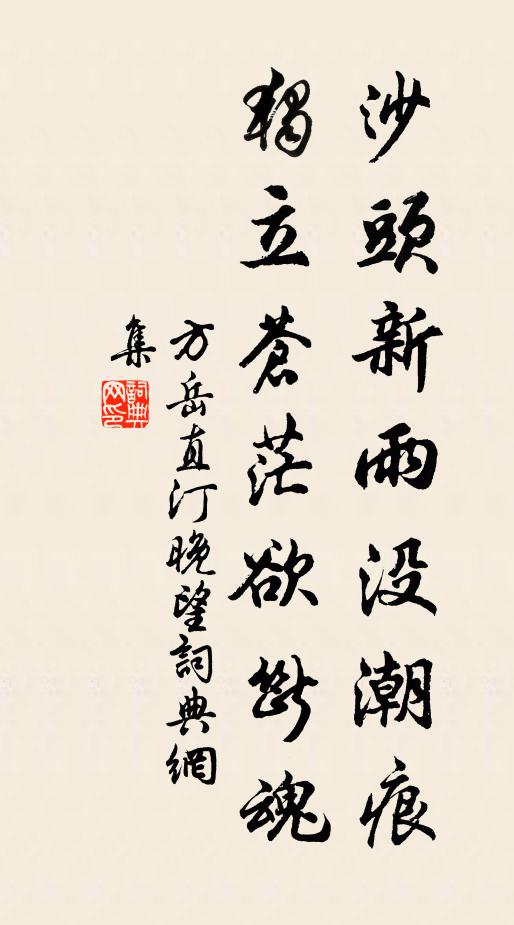 沙頭新雨没潮痕
獨立蒼茫欲斷魂
方岳直汀晚望詞典網
集
詞典网印